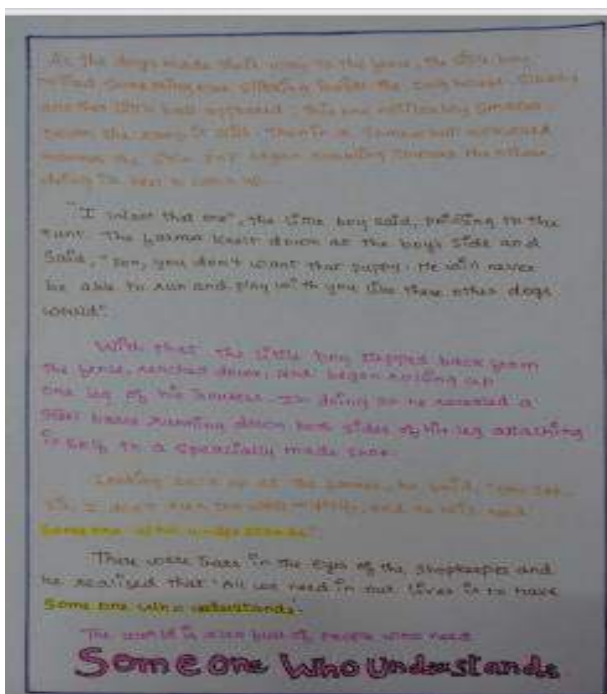 As the dogs made their way to the fence, the little boy
noticed something else stirring inside the dog house. Slowly
another little ball appeared, this one noticeably smaller.
Down the ramp it slid. Then in a somewhat awkward
manner the little pup began hobbling towards the others,
doing its best to catch up.
"I want that one", the little boy said, pointing to the
runt. The farmer knelt down at the boy's side and
said, "Son, you don't want that puppy. He will never
be able to run and play with you like these other dogs
would".
With that the little boy stepped back from
the fence, reached down, and began rolling up
one leg of his trousers. In doing so he revealed a
steel brace running down both sides of his leg attaching
itself to a specially made shoe.
Looking back up at the farmer, he said, "You see
sir, I don't run too well myself, and he will need
some one who understands".
There were tears in the eyes of the shopkeeper and
he realised that "All we need in our lives is to have
Some one who understands.
The world is also full of people who need
Some one Who Understands